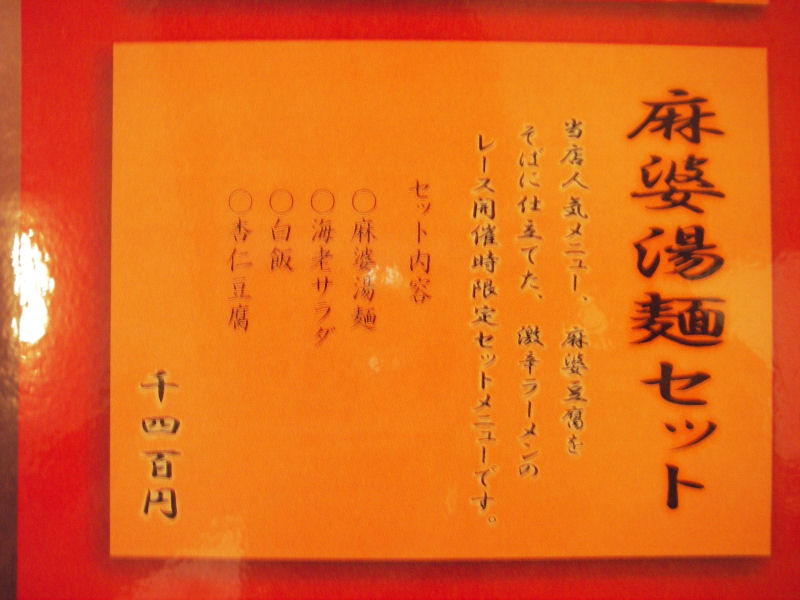 麻婆湯麺セット
当店人気メニュー、麻婆豆腐を
そばに仕立てた、激辛ラーメンの
レース開催時限定セットメニューです。
セット内容
〇麻婆湯麺
〇海老サラダ
〇白飯
〇杏仁豆腐
千四百円